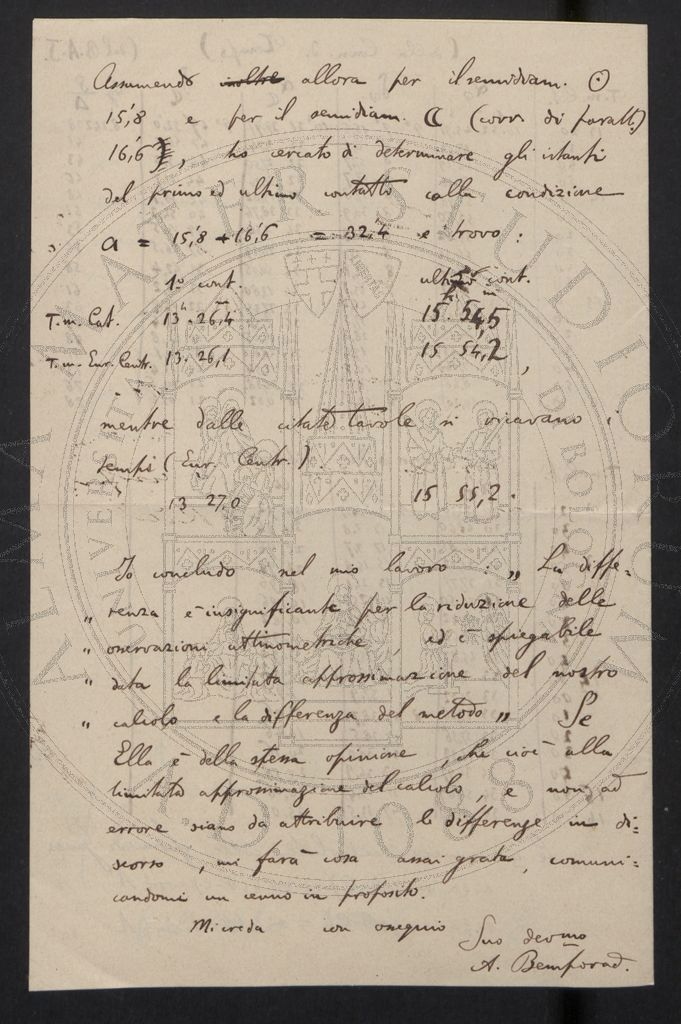 Assumendo inoltre allora per il semidiam. ☉
15',8 e per il semidiam. ☾ (corr. di parall.)
16',6, ho cercato di determinare gli istanti
del primo ed ultimo contatto colla condizione
a = 15',8 + 16',6 = 32',4 e trovo:
1º cont. ultimo cont.
T. m. Cat. 13h 26m,4 15h 54m,5
T. m. Eur. Centr. 13. 26,1 15 54,2,
mentre dalle citate tavole si ricavano i
tempi (Eur. Centr.)
13 27,0 15 55,2.
Io concludo nel mio lavoro: „ La diffe-
„ renza è insignificante per la riduzione delle
„ osservazioni attinometriche, ed è spiegabile
„ data la limitata approssimazione del nostro
„ calcolo e la differenza del metodo „ Se
Ella è della stessa opinione, che cioè alla
limitata approssimazione del calcolo, e non ad
errore siano da attribuire le differenze in di=
scorso, mi farà cosa assai grata, comuni=
candomi un cenno in proposito.
Mi creda con ossequio
Suo devmo
A. Bemporad.
ALMA MATER STUDIORUM
A.D. 1088